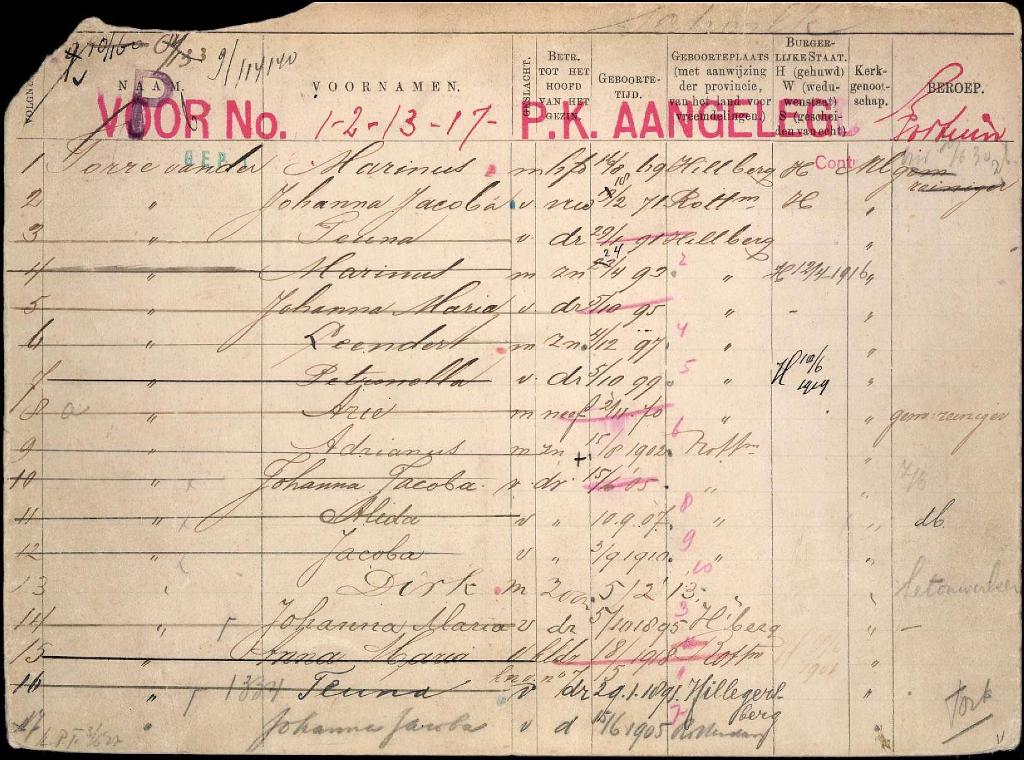 9/114140
VOLGNo.
NAAM.
VOORNAMEN.
GESLACHT.
BETR. TOT HET HOOFD VAN HET GEZIN.
GEBOORTE-TIJD.
GEBOORTEPLAATS (met aanwijzing der provincie, van het land voor vreemdelingen.)
BURGER-LIJKE STAAT. H (gehuwd) W (wedu-wenstaat) S (geschei-den van echt)
Kerk-genoot-schap.
BEROEP.
P
VOOR No. 1-2-13-17- P.K. AANGELEGD
Portier
GEP.
Cont
1 Torre van der Marinus m hfd 69 Hillberg H
2 " Johanna Jacoba v 71 Rottm H "
3 " Teuna v dr 29/1 91 Hillberg "
4 " Marinus m zn 24/4 92 " H 12/4 1916 "
5 " Johanna Maria v dr 5/10 95 " - "
6 " Leendert m zn 4/12 97 " "
7 " Petronella v dr 5/10 99 " H 10/6 1919 "
8 a " Arie m neef 2/11 70 " " gem: reiniger
9 " Adrianus m zn 15/8 1902 Rottm "
10 " Johanna Jacoba v dr 15/6 05 " "
11 " Alida v " 10.9.07 " " db.
12 " Jacoba v " 3/9 1910 " "
13 " Dirk m zoon 5/2 '13 " " betonwerker
14 " Johanna Maria v dr 5/10 1895 H'berg " -
15 " Anna Maria v kldr 18/ 1918 Rottm "
16 " Teuna v dr 29.1.1891 Hillegersberg "
17 " Johanna Jacoba v d 15/6 1905 Rotterdam
Tork